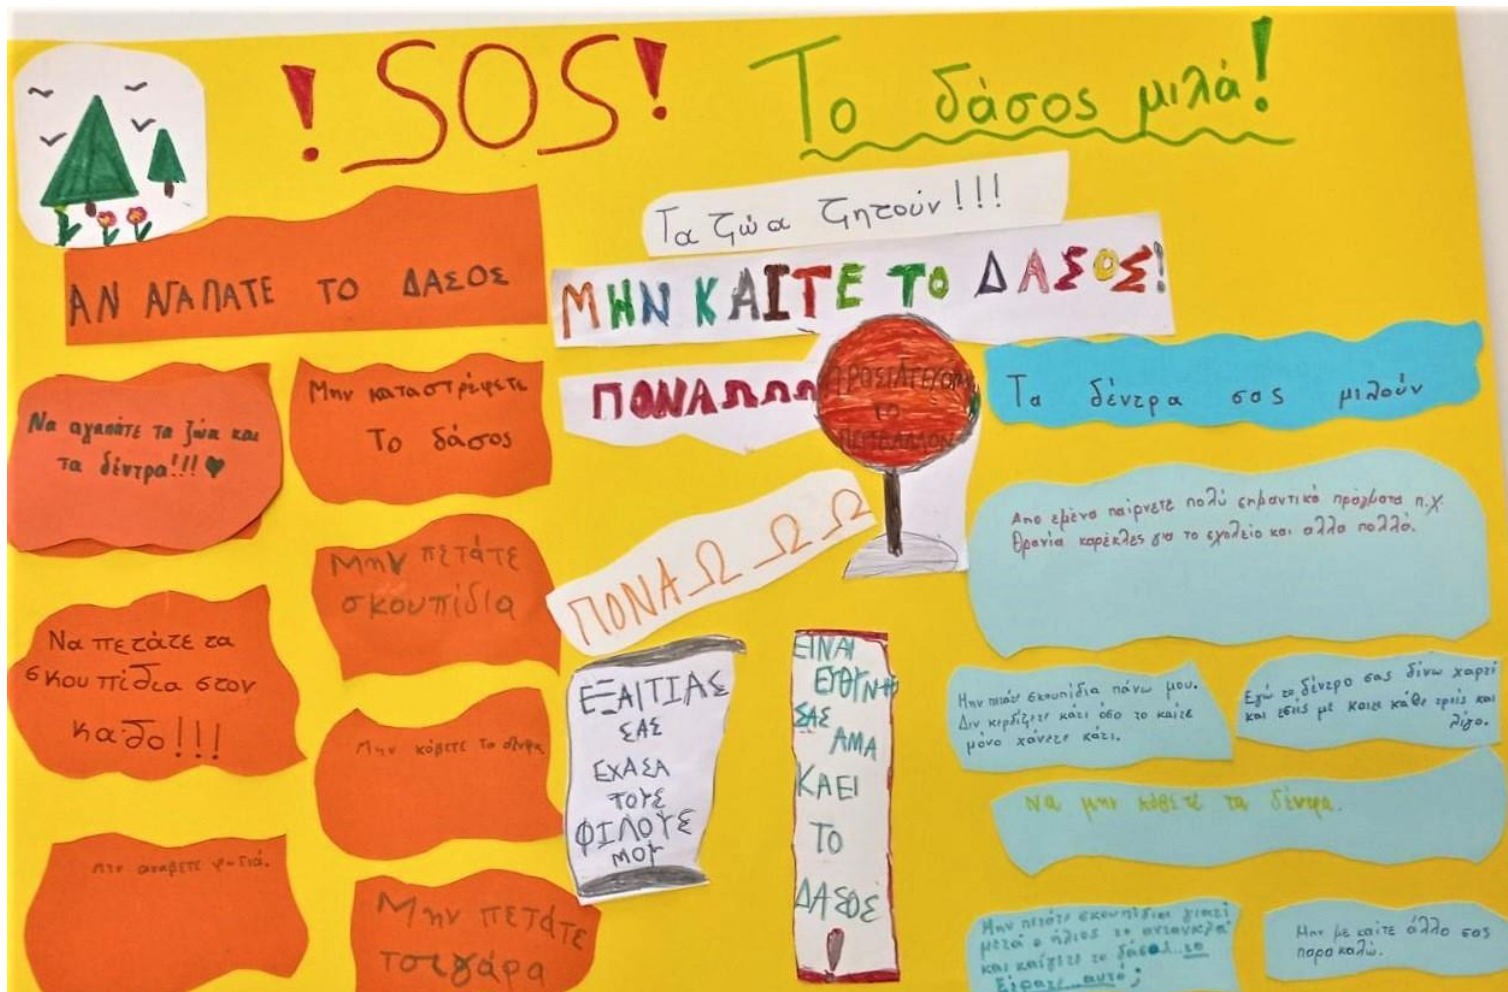 ! SOS!
Το δάσος μιλά!
ΑΝ ΑΓΑΠΑΤΕ ΤΟ ΔΑΣΟΣ
Να αγαπάτε τα ζώα και
τα δέντρα!!! ♥
Μην καταστρέφετε
Το δάσος
Μην πετάτε
σκουπίδια
Να πετάτε τα
σκουπίδια στον
κάδο!!!
Μην κόβετε το δέντρο
Μην αναβετε φωτιά.
Μην πετάτε
τσιγάρα
Τα ζώα ζητούν!!!
ΜΗΝ ΚΑΙΤΕ ΤΟ ΔΑΣΟΣ!
ΠΟΝΑΩΩΩ
ΤΟ
ΠΕΡΙΒΑΛΛΟΝ
ΠΟΝΑΩ Ω Ω
ΕΞΑΙΤΙΑΣ
ΣΑΣ
ΕΧΑΣΑ
ΤΟΥΣ
ΦΙΛΟΥΣ
ΜΟΥ
ΕΙΝΑΙ
ΕΥΘΥΝΗ
ΣΑΣ
ΑΜΑ
ΚΑΕΙ
ΤΟ
ΔΑΣΟΣ
!
Τα δέντρα σας μιλούν
Απο εμένα παίρνετε πολύ σημαντικά πράγματα π.χ.
θρανία καρέκλες για το σχολείο και αλλα πολλά.
Μην πετάτε σκουπίδια πάνω μου.
Δεν κερδίζετε κάτι όσο το καίτε
μόνο χάνετε κάτι.
Εγώ το δέντρο σας δίνω χαρτί
και εσείς με καιτε κάθε τρείς και
λίγο.
Να μην κόβετε τα δέντρα.
Μην πετάτε σκουπίδια γιατί
μετά ο ήλιος το αντανκλά
και καίγετε το δάσος... το
ξέρατε αυτό;
Μην με καίτε άλλο σας
παρακαλώ.